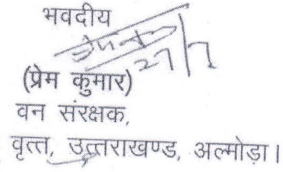 भवदीय
27/7
(प्रेम कुमार)
वन संरक्षक,
वृत्त, उत्तराखण्ड, अल्मोड़ा।